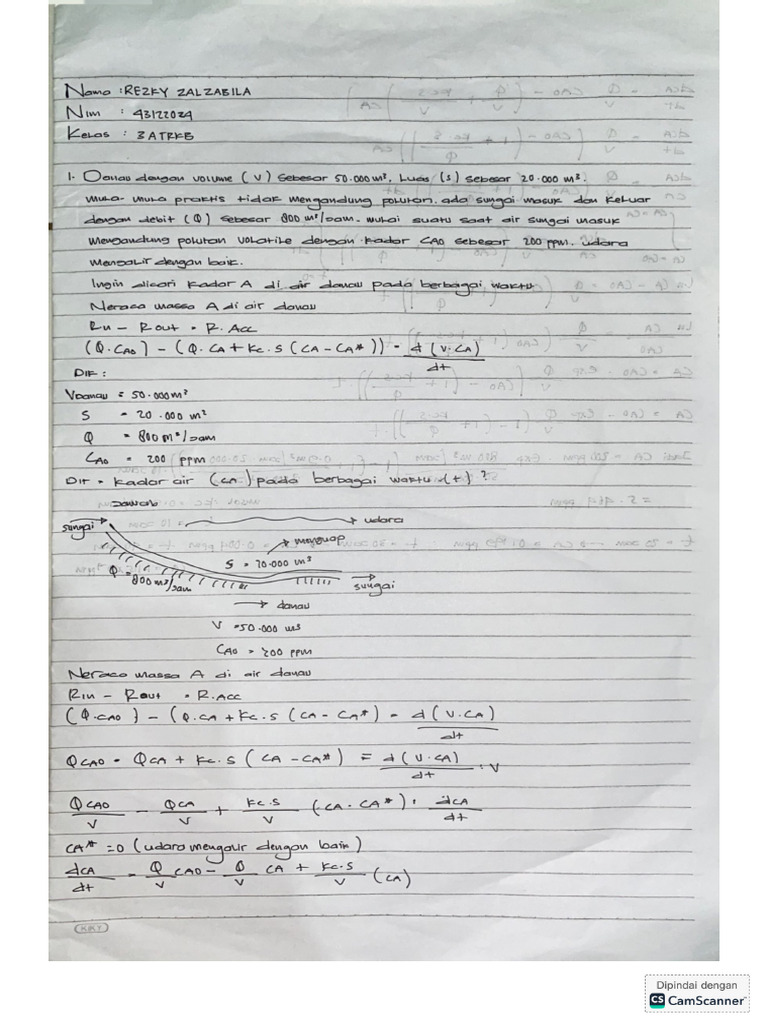 Nama : REZKY ZALZABILA
Nim : 43122029
Kelas : 3 ATRKB
1. Danau dengan volume (V) sebesar 50.000 m³. Luas (S) sebesar 20.000 m².
mula-mula praktis tidak mengandung polutan. ada sungai masuk dan keluar
dengan debit (Q) sebesar 800 m³/jam. mulai suatu saat air sungai masuk
mengandung polutan volatile dengan kadar CAO sebesar 200 ppm. udara
mengalir dengan baik.
Ingin dicari kadar A di air danau pada berbagai waktu
Neraca massa A di air danau
Rin - Rout = R.Acc
(Q.CAO) - (Q.CA + Kc.S (CA - CA*)) = d(V.CA)/dt
Dik :
Vdanau = 50.000 m³
S = 20.000 m²
Q = 800 m³/jam
CAO = 200 ppm
Dit = kadar air (CA) pada berbagai waktu (t) ?
Jawab
sungai → udara
menguap
S = 20.000 m²
Q = 800 m³/jam
sungai
→ danau
V = 50.000 m³
CAO = 200 ppm
Neraca massa A di air danau
Rin - Rout = R.Acc
(Q.CAO) - (Q.CA + Kc.S (CA - CA*) = d(V.CA)/dt
QCAO - QCA + Kc.S (CA - CA*) = d(V.CA)/dt : V
QCAO/V - QCA/V + Kc.S/V (CA - CA*) = dCA/dt
CA* = 0 (udara mengalir dengan baik)
dCA/dt = Q/V CAO - Q/V CA + Kc.S/V (CA)
KIKY
Dipindai dengan
CS CamScanner